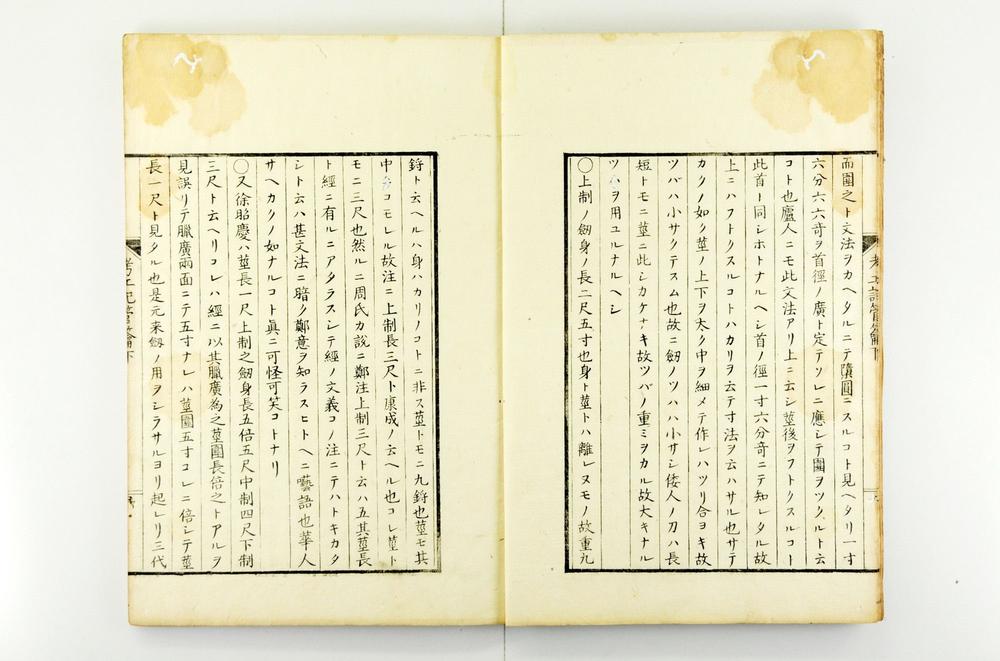 而圍之ト文法ヲカヘタルニテ隋圓ニスルコト見ヘタリ一寸
六分六六奇ヲ首徑ノ廣ト定テソレニ應シテ圍ヲツクルト云
コト也廬人ニモ此文法アリ上ニ云シ莖後ヲフトクスルコト
此首ト同シホトナルヘシ首ノ徑一寸六分奇ニテ知レタル故
上ニハフトクスルコトハカリヲ云テ寸法ヲ云ハサル也サテ
カクノ如ク莖ノ上下ヲ太ク中ヲ細メテ作レハツリ合ヨキ故
ツバハ小サクテスム也故ニ劔ノツハハ小サシ倭人ノ刀ハ長
短トモニ莖ニ此シカケナキ故ツバノ重ミヲカル故大キナル
ツハヲ用ユルナルヘシ
〇上制ノ劔身ノ長二尺五寸也身ト莖トハ離レヌモノ故重九
鋝ト云ヘルハ身ハカリノコトニ非ス莖トモニ九鋝也莖モ其
中ニコモレル故注ニ上制長三尺ト康成ノ云ヘル也コレ莖ト
モニ三尺也然ルニ周氏カ説ニ鄭注上制三尺ト云ハ五其莖長
ト經ニ有ルニアタラスシテ經ノ文義コノ注ニテハトキカタ
シト云ハ甚文法ニ暗ク鄭意ヲ知ラスヒトヘニ囈語也華人
サヘカクノ如ナルコト眞ニ可怪可笑コトナリ
〇又徐昭慶ハ莖長一尺上制之劔身長五倍五尺中制四尺下制
三尺ト云ヘリコレハ經ニ以其臘廣為之莖圍長倍之トアルヲ
見誤リテ臘廣兩面ニテ五寸ナレハ莖圍五寸コレニ倍シテ莖
長一尺ト見タル也是元来劔ノ用ヲシラサルヨリ起レリ三代